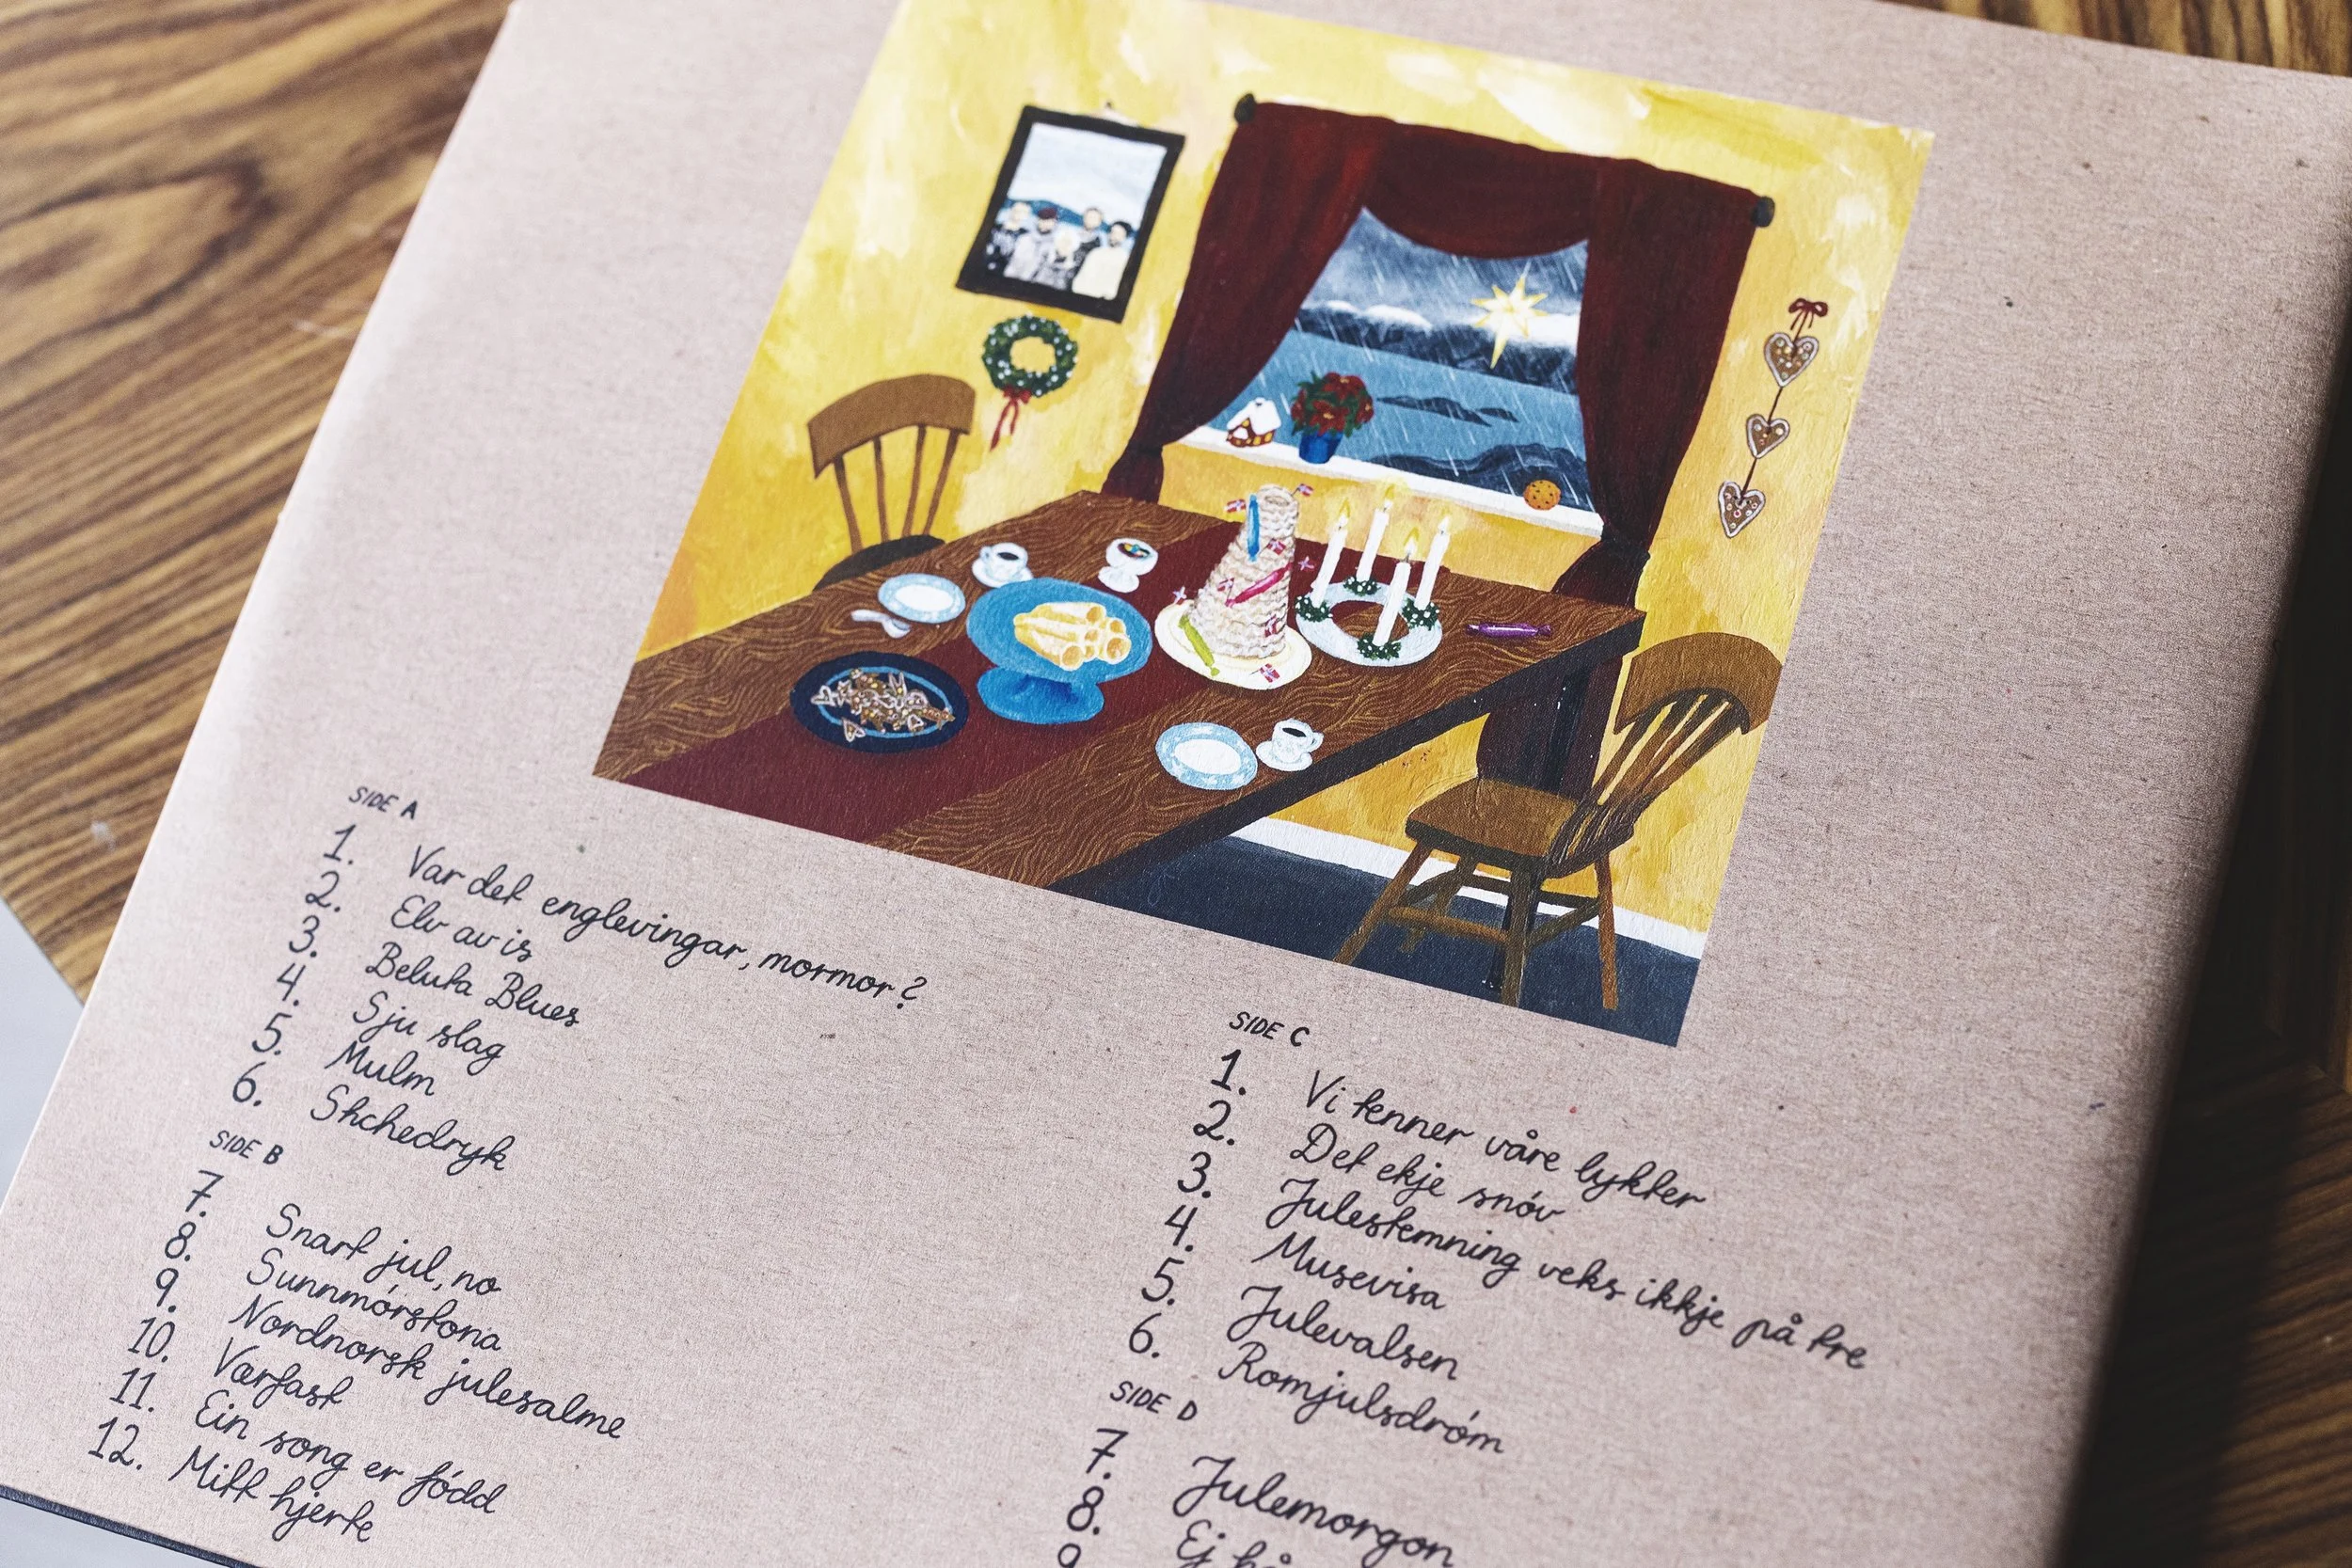 SIDE A
1. Var det englevingar, mormor?
2. Elv av is
3. Beluta Blues
4. Sju slag
5. Mulm
6. Shchedryk
SIDE B
7. Snart jul, no
8. Sunnmórstona
9. Nordnorsk julesalme
10. Værfast
11. Ein song er fódd
12. Mitt hjerte
SIDE C
1. Vi tenner våre lykter
2. Det ekje snóv
3. Julestemning veks ikkje på tre
4. Musevisa
5. Julevalsen
6. Romjulsdróm
SIDE D
7. Julemorgon
8. Ej
9